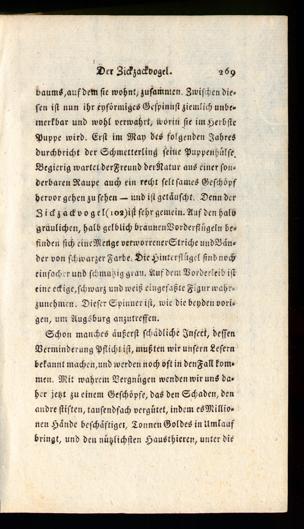 Der Zickzackvogel. 269
baums, auf dem sie wohnt, zusammen. Zwischen die-
sen ist nun ihr eyförmiges Gespinnst ziemlich unbe-
merkbar und wohl verwahrt, worin sie im Herbste
Puppe wird. Erst im May des folgenden Jahres
durchbricht der Schmetterling seine Puppenhülse.
Begierig wartet der Freund der Natur aus einer son-
derbaren Raupe auch ein recht seltsames Geschöpf
hervor gehen zu sehen — und ist getäuscht. Denn der
Zickzackvogel (102) ist sehr gemein. Auf den halb
gräulichen, halb gelblich braunen Vorderflügeln be-
finden sich eine Menge verworrener Striche und Bän-
der von schwarzer Farbe. Die Hinterflügel sind noch
einfacher und schmutzig grau. Auf dem Vorderleib ist
eine eckige, schwarz und weiß eingefaßte Figur wahr-
zunehmen. Dieser Spinner ist, wie die beyden vori-
gen, um Augsburg anzutreffen.
Schon manches äußerst schädliche Insect, dessen
Verminderung Pflicht ist, mußten wir unsern Lesern
bekannt machen, und werden noch oft in den Fall kom-
men. Mit wahrem Vergnügen wenden wir uns da-
her jetzt zu einem Geschöpfe, das den Schaden, den
andre stiften, tausendfach vergütet, indem es Millio-
nen Hände beschäftiget, Tonnen Goldes in Umlauf
bringt, und den nützlichsten Hausthieren, unter die